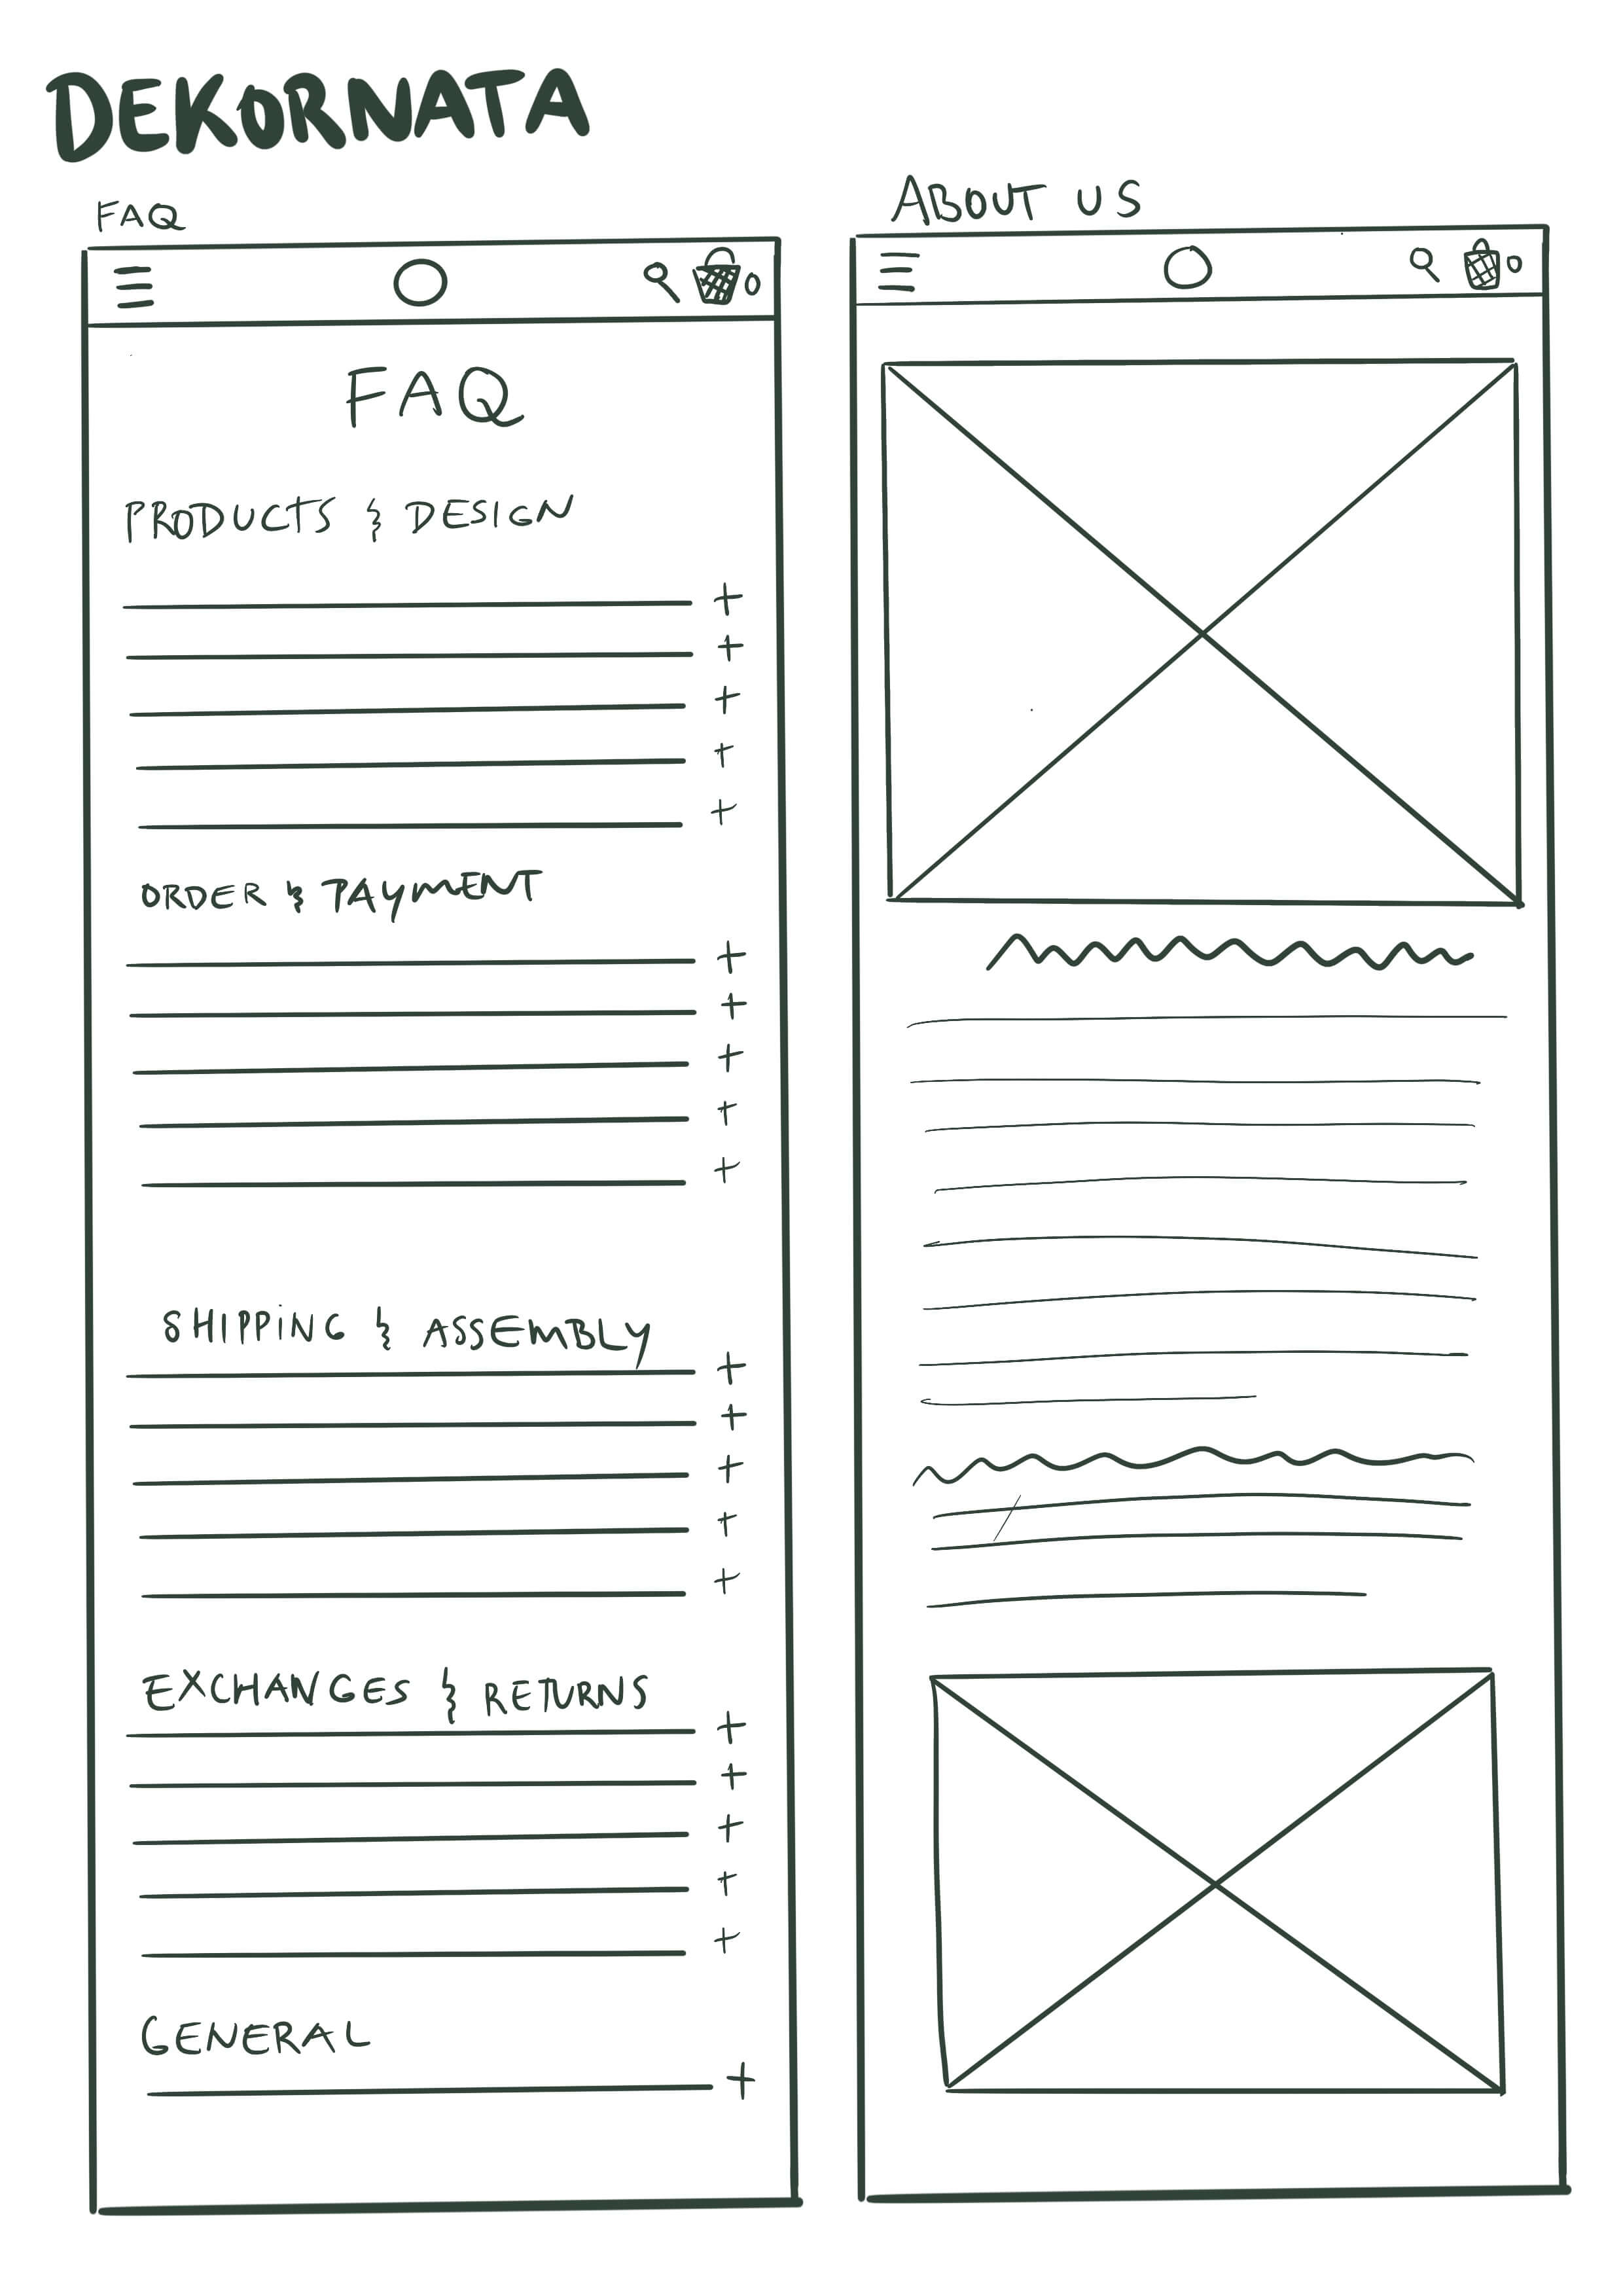 DEKORNATA
FAQ
FAQ
PRODUCTS & DESIGN
+
+
+
+
+
ORDER & PAYMENT
+
+
+
+
+
SHIPPING & ASSEMBLY
+
+
+
+
+
EXCHANGES & RETURNS
+
+
+
+
+
GENERAL
+
ABOUT US